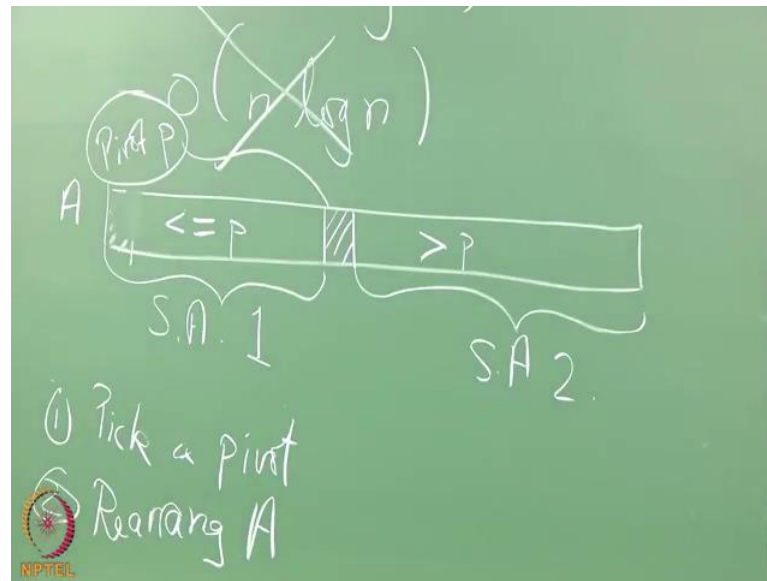 O(n log n)
Pivot P
A <= P > P
S.A. 1 S.A 2.
① Pick a pivot
② Rearrang A
NPTEL